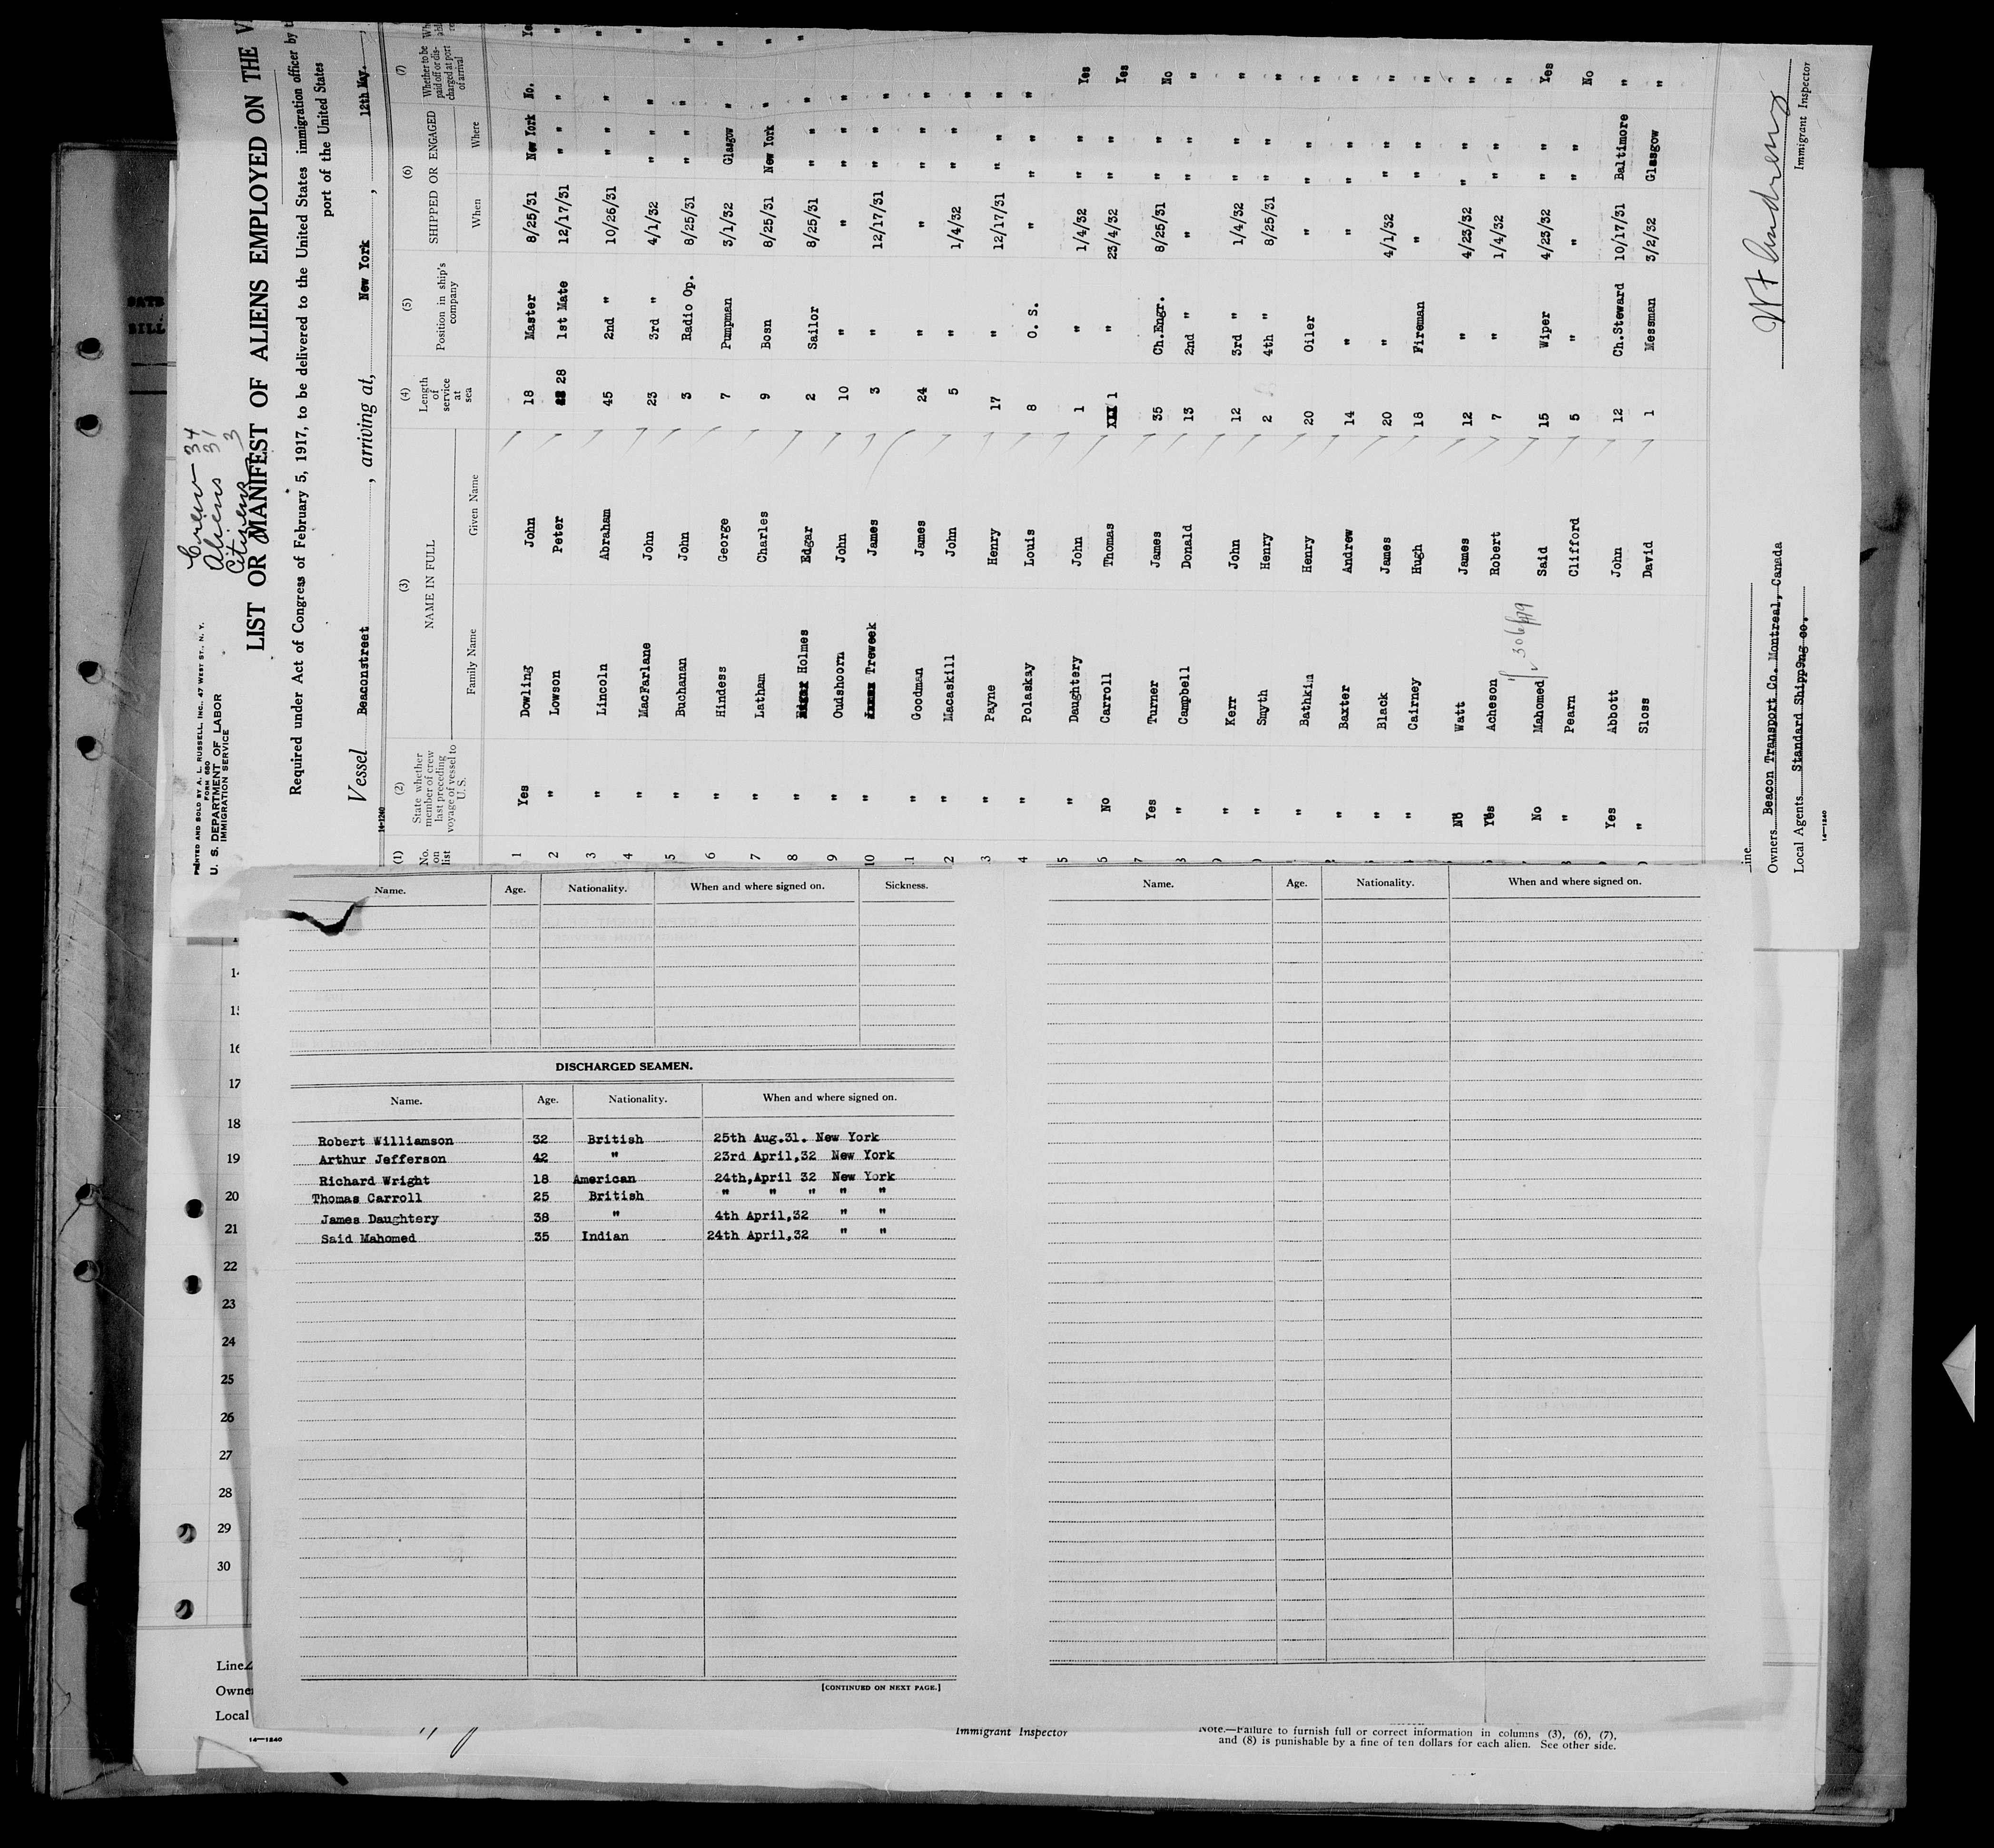 Crew 34
Aliens 31
Citizens 3
PRINTED AND SOLD BY A. L. RUSSELL, INC., 47 WEST ST., N. Y.
FORM 680
U. S. DEPARTMENT OF LABOR
IMMIGRATION SERVICE
LIST OR MANIFEST OF ALIENS EMPLOYED ON THE
Required under Act of Congress of February 5, 1917, to be delivered to the United States immigration officer by
port of the United States
Vessel Beaconstreet, arriving at, New York, 12th May.
14-1240
(1) No. on list (2) State whether member of crew last preceding voyage of vessel to U.S. (3) NAME IN FULL Family Name Given Name (4) Length of service at sea (5) Position in ship's company (6) SHIPPED OR ENGAGED When Where (7) Whether to be paid off or discharged at port of arrival
1 Yes Dowling John 18 Master 8/25/31 New York No. Yes
2 " Lowson Peter 28 1st Mate 12/17/31 " " " "
3 " Lincoln Abraham 45 2nd " 10/26/31 " " " "
4 " MacFarlane John 23 3rd " 4/1/32 " " " "
5 " Buchanan John 3 Radio Op. 8/25/31 " " " "
6 " Hindess George 7 Pumpman 3/1/32 Glasgow " "
7 " Latham Charles 9 Bosn 8/25/31 New York " "
8 " Holmes Edgar 2 Sailor 8/25/31 " " " "
9 " Oudshoorn John 10 " " " " "
10 " Treweek James 3 " 12/17/31 " " "
1 " Goodman James 24 " " " " "
2 " Macaskill John 5 " 1/4/32 " " "
3 " Payne Henry 17 " 12/17/31 " " "
4 " Polaskay Louis 8 O. S. " " " "
5 " Daughtery John 1 " 1/4/32 " " Yes
No Carroll Thomas 1 " 23/4/32 " " Yes
7 Yes Turner James 35 Ch.Engr. 8/25/31 " " No
" Campbell Donald 13 2nd " " " " "
" Kerr John 12 3rd " 1/4/32 " " "
" Smyth Henry 2 4th " 8/25/31 " " "
" Bathkin Henry 20 Oiler " " " "
" Baxter Andrew 14 " " " " "
" Black James 20 " 4/1/32 " " "
" Cairney Hugh 18 Fireman " " " "
No Watt James 12 " 4/23/32 " " "
Yes Acheson Robert 7 " 1/4/32 " " "
No Mahomed Said 15 Wiper 4/23/32 " " Yes
" Pearn Clifford 5 " " " " No
Yes Abbott John 12 Ch.Steward 10/17/31 Baltimore "
" Sloss David 1 Messman 3/2/32 Glasgow "
Owners Beacon Transport Co. Montreal, Canada
Local Agents Standard Shipp9ng co.
14-1240
Immigrant Inspector
Name. Age. Nationality. When and where signed on. Sickness.
DISCHARGED SEAMEN.
Name. Age. Nationality. When and where signed on.
Robert Williamson 32 British 25th Aug.31. New York
Arthur Jefferson 42 " 23rd April,32 New York
Richard Wright 18 American 24th,April 32 New York
Thomas Carroll 25 British " " " " "
James Daughtery 38 " 4th April,32 " "
Said Mahomed 35 Indian 24th April,32 " "
[CONTINUED ON NEXT PAGE.]
Name. Age. Nationality. When and where signed on.
16
17
18
19
20
21
22
23
24
25
26
27
28
29
30
Line
Owner
Local
14-1240
Immigrant Inspector
Note.—Failure to furnish full or correct information in columns (3), (6), (7),
and (8) is punishable by a fine of ten dollars for each alien. See other side.